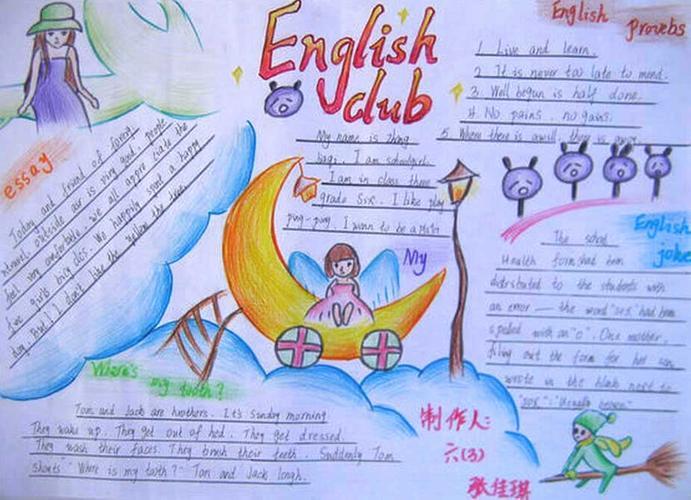 English club
English proverbs
1. Live and learn.
2. It is never too late to mend.
3. Well begun is half done.
4. No pains . no gains.
5. Where there is a will, there is
My name is Zhang
I am schoolgirls
I am in class three
grade Six. I like play
ping-pong. I wann to be a
My
essay
Today and friend of
outside air is very good. people
feel very comfortable. we all appreciate the
five girls We happily spent a happy
day. But I don't like the yellow the
English joke
The school
Health form had been
distributed to the students with
an error — the word "sex" had been
spelled with an "o". One mother,
filling out the form for her son,
wrote in the blank next to
"sox":
Where's my tooth?
Tom and Jack are brothers. It's sunday morning.
They wake up. They get out of bed. They get dressed.
They wash their faces. They brush their teeth. Suddenly Tom
shouts "Where is my tooth?" Tom and Jack laugh.
制作人:
六(3)
张佳琪